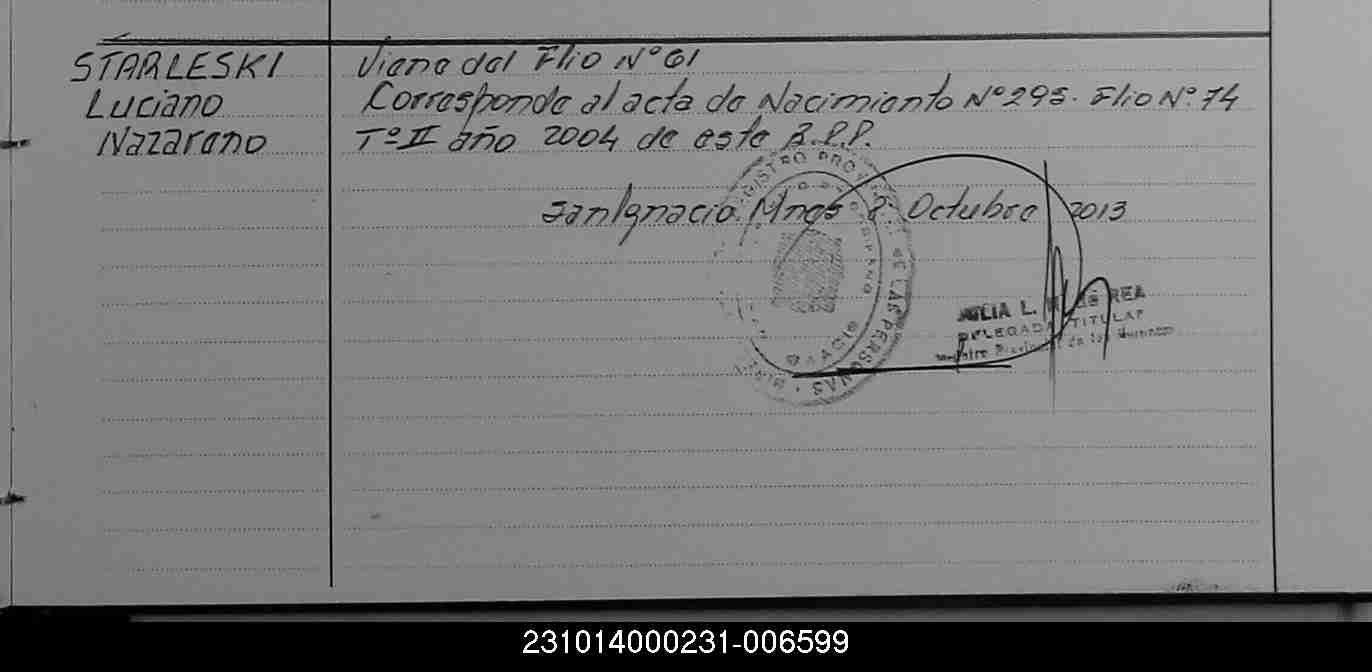 STARLESKI Viene del Flio N° 61
Luciano Corresponde al acta de Nacimiento N° 295. Flio N°. 74
Nazareno T° II año 2004 de este R.P.P.
San Ignacio. Mnes 2 Octubre 2013
REGISTRO PROVINCIAL DE LAS PERSONAS
IGNACIO
JULIA L.
DELEGADA TITULAR
Registro Provincial de las Personas
231014000231-006599